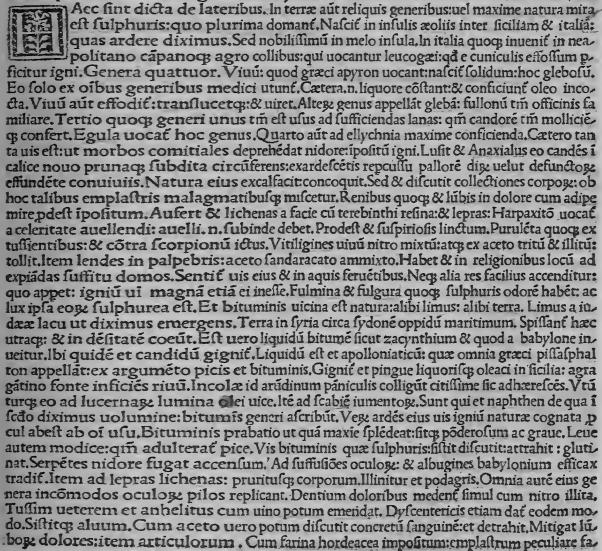 HAec sint dicta de lateribus. In terræ aũt reliquis generibus:uel maxime natura mira
est sulphuris:quo plurima domant᷑. Nascit᷑ in insulis æoliis inter siciliam & italiã:
quas ardere diximus. Sed nobilissimũ in melo insula. In italia quoqꝫ inuenit᷑ in nea
politano cãpanoqꝫ agro collibus:qui uocantur leucogæi:qđ e cuniculis effossum p
ficitur igni. Genera quattuor. Viuũ: quod græci apyron uocant:nascit᷑ solidum:hoc glebosũ.
Eo solo ex oĩbus generibus medici utunt᷑. Cætera.n. liquore cõstant:& conficiunt᷑ oleo inco
cta. Viuũ aũt effodit᷑:translucetqꝫ:& uiret. Alteꝝ genus appellãt glebã: fullonũ tm̃ officinis fa
miliare. Tertio quoqꝫ generi unus tm̃ est usus ad sufficiendas lanas: qm̃ candorẽ tm̃ molliciẽ
qꝫ confert. Egula uocat᷑ hoc genus. Quarto aũt ad ellychnia maxime conficienda. Cætero tan
ta uis est:ut morbos comitiales deprehẽdat nidore:ĩpositũ igni. Lusit & Anaxialus eo candẽs ĩ
calice nouo prunaqꝫ subdita circũferens:exardescẽtis repcussu pallorẽ diꝝ uelut defunctoꝝ
effundẽte conuiuiis. Natura eius excalfacit:concoquit. Sed & discutit collectiones corpoꝝ: ob
hoc talibus emplastris malagmatibusqꝫ miscetur. Renibus quoqꝫ & lũbis in dolore cum adipe
mire, pdest ĩpositum. Aufert & lichenas a facie cũ terebinthi resina:& lepras: Harpaxtõ uocat᷑
a celeritate auellendi: auelli.n. subinde debet. Prodest & suspiriosis linctum. Purulẽta quoqꝫ ex
tussientibus:& cõtra scorpionũ ictus. Vitiligines uiuũ nitro mixtũ:atqꝫ ex aceto tritũ & illitũ:
tollit. Item lendes in palpebris:aceto sandaracato ammixto. Habet & in religionibus locũ ad
expiãdas suffitu domos. Sentit᷑ uis eius & in aquis feruẽtibus. Neqꝫ alia res facilius accenditur:
quo appet: igniũ uĩ magnã etiã ei inesse. Fulmina & fulgura quoqꝫ sulphuris odorẽ habẽt: ac
lux ipsa eoꝝ sulphurea est. Et bituminis uicina est natura:alibi limus: alibi terra. Limus a iu
dææ lacu ut diximus emergens. Terra in syria circa sydonẽ oppidũ maritimum. Spissant᷑ hæc
utraqꝫ: & in dẽsitatẽ coeũt. Est uero liquidũ bitumẽ sicut zacynthium & quod a babylone in-
ueitur. Ibi quidẽ et candidũ gignit᷑. Liquidũ est et apolloniaticũ: quæ omnia græci pissasphal
ton appellãt:ex argumẽto picis et bituminis. Gignit᷑ et pingue liquorisqꝫ oleaci in sicilia: agra
gãtino fonte inficiẽs riuũ. Incolæ id arũdinum pãniculis colligũt citissime sic adhærescẽs. Vtũ
turqꝫ eo ad lucernaꝝ lumina olei uice. Itẽ ad scabiẽ iumentoꝝ. Sunt qui et naphthen de qua ĩ
scđo diximus uolumine: bituminis generi ascribũt. Veꝝ ardẽs eius uis igniũ naturæ cognata p
cul abest ab oĩ usu. Bituminis prabatio ut quã maxie splẽdeat:sitqꝫ põderosum ac graue. Leue
autem modice:qm̃ adulterat᷑ pice. Vis bituminis quæ sulphuris:sistit discutit:attrahit : gluti
nat. Serpẽtes nidore fugat accensum. Ad suffusiões oculoꝝ: & albugines babylonium efficax
tradit᷑. Item ad lepras lichenas: pruritusqꝫ corporum. Illinitur et podagris. Omnia autẽ eius ge
nera incõmodos oculoꝝ pilos replicant. Dentium doloribus medent᷑ simul cum nitro illita.
Tussim ueterem et anhelitus cum uino potum emendat. Dysentericis etiam dat᷑ eodem mo-
do. Sistitqꝫ aluum. Cum aceto uero potum discutit concretũ sanguinẽ:et detrahit. Mitigat lũ
boꝝ dolores:item articulorum. Cum farina hordeacea impositum:emplastrum peculiare fa